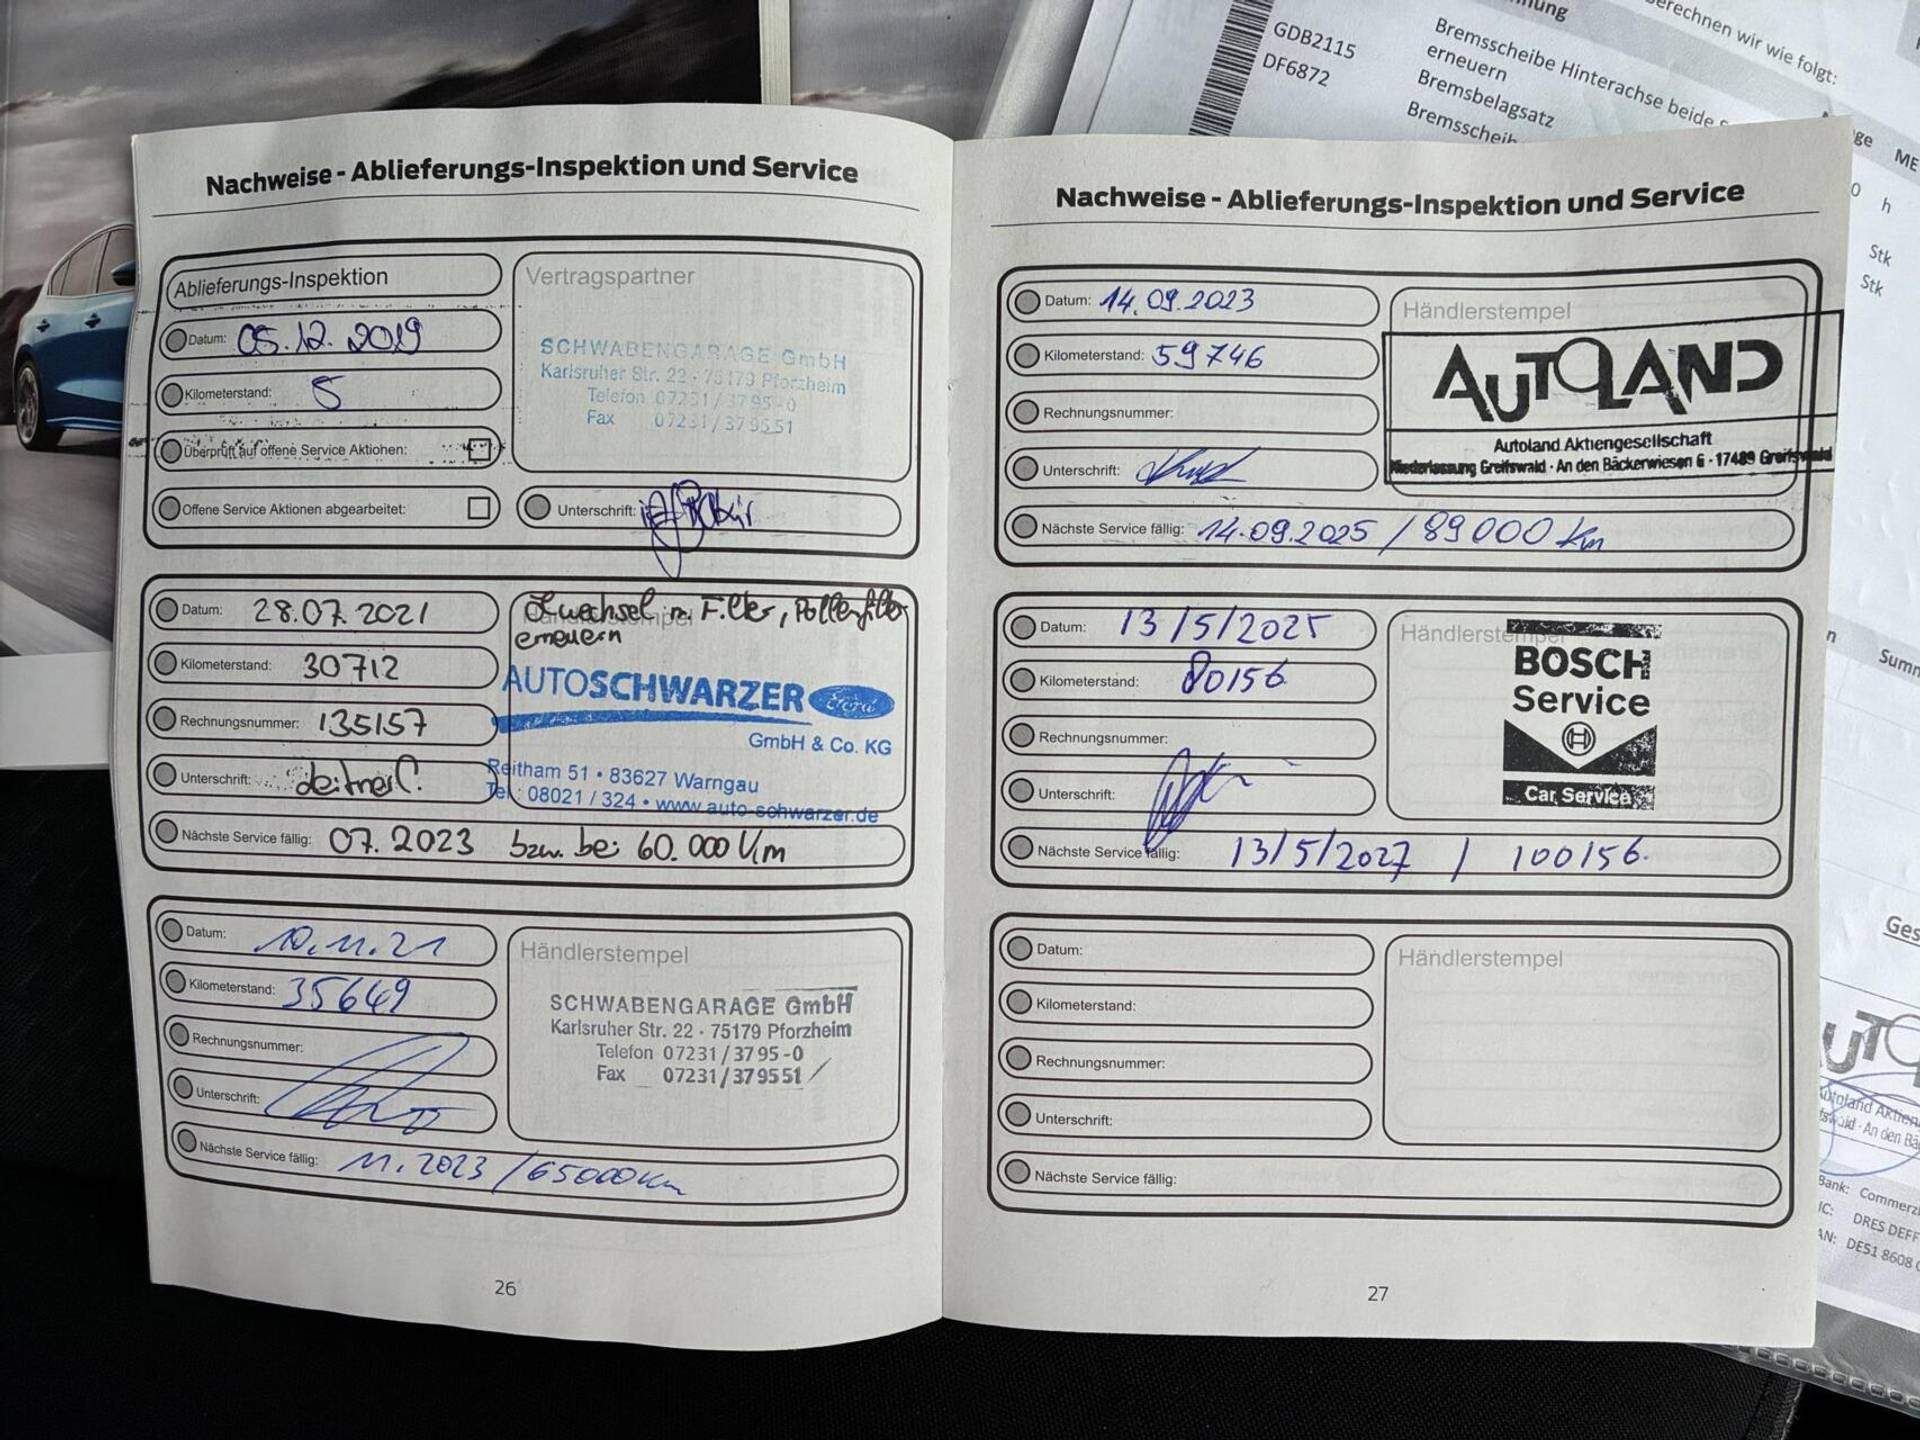 Nachweise - Ablieferungs-Inspektion und Service
Ablieferungs-Inspektion
Datum: 05.12.2019
Kilometerstand: 5
Überprüft auf offene Service Aktionen:
Offene Service Aktionen abgearbeitet:
Vertragspartner
SCHWABENGARAGE GmbH
Karlsruher Str. 22 · 75179 Pforzheim
Telefon 07231/3795-0
Fax 07231/379551
Unterschrift:
Datum: 28.07.2021
Kilometerstand: 30712
Rechnungsnummer: 135157
Unterschrift:
Händlerstempel
Ölwechsel m. Filter, Pollenfilter
erneuern
AUTOSCHWARZER Ford
GmbH & Co. KG
Reitham 51 • 83627 Warngau
Tel.: 08021 / 324 • www.auto-schwarzer.de
Nächste Service fällig: 07.2023 bzw. bei 60.000 km
Datum: 10.11.21
Kilometerstand: 35649
Rechnungsnummer:
Unterschrift:
Händlerstempel
SCHWABENGARAGE GmbH
Karlsruher Str. 22 · 75179 Pforzheim
Telefon 07231/3795-0
Fax 07231/379551
Nächste Service fällig: 11.2023 / 65000 km
26
Nachweise - Ablieferungs-Inspektion und Service
Datum: 14.09.2023
Kilometerstand: 59746
Rechnungsnummer:
Unterschrift:
Händlerstempel
AUTOLAND
Autoland Aktiengesellschaft
Niederlassung Greifswald · An den Bäckerwiesen 6 · 17489 Greifswald
Nächste Service fällig: 14.09.2025 / 89000 km
Datum: 13/5/2025
Kilometerstand: 80156
Rechnungsnummer:
Unterschrift:
Händlerstempel
BOSCH
Service
Car Service
Nächste Service fällig: 13/5/2027 / 100156.
Datum:
Kilometerstand:
Rechnungsnummer:
Unterschrift:
Händlerstempel
Nächste Service fällig:
27
erechnen wir wie folgt:
GDB2115
DF6872
Bremsscheibe Hinterachse beide
erneuern
Bremsbelagsatz
Bremsscheib
ge ME
0 h
Stk
Stk
Summ
Ges
UTO
Autoland Aktien
An den Bä
Bank: Commerz
IC: DRES DEFF
AN: DE51 8608 0